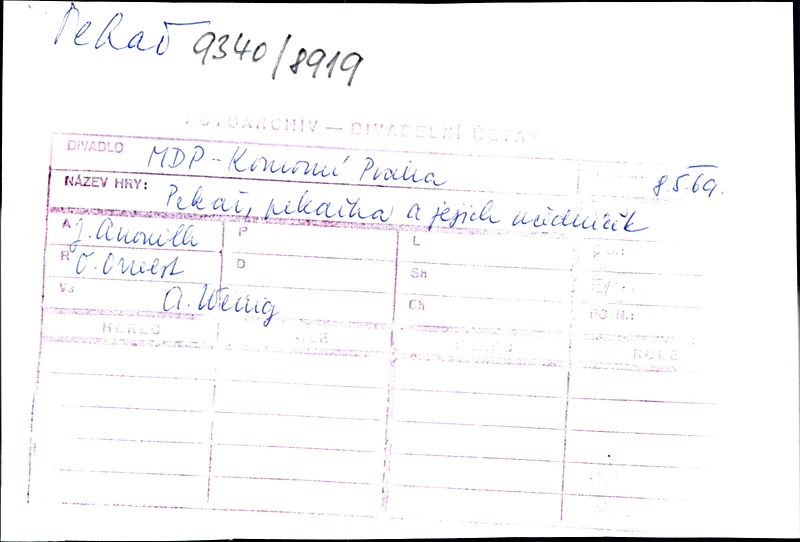 Pekař 9340/8919
FOTOARCHIV — DIVADELNÍ ÚSTAV
DIVADLO MDP - Komorní Praha 8.5.69.
NÁZEV HRY: Pekař, pekařka a jejich učedníček
A J. Anouilh P L
R O. Ornest D Sh
Vs A. Wenig Ch POZN.:
HEREC ROLE HEREC ROLE